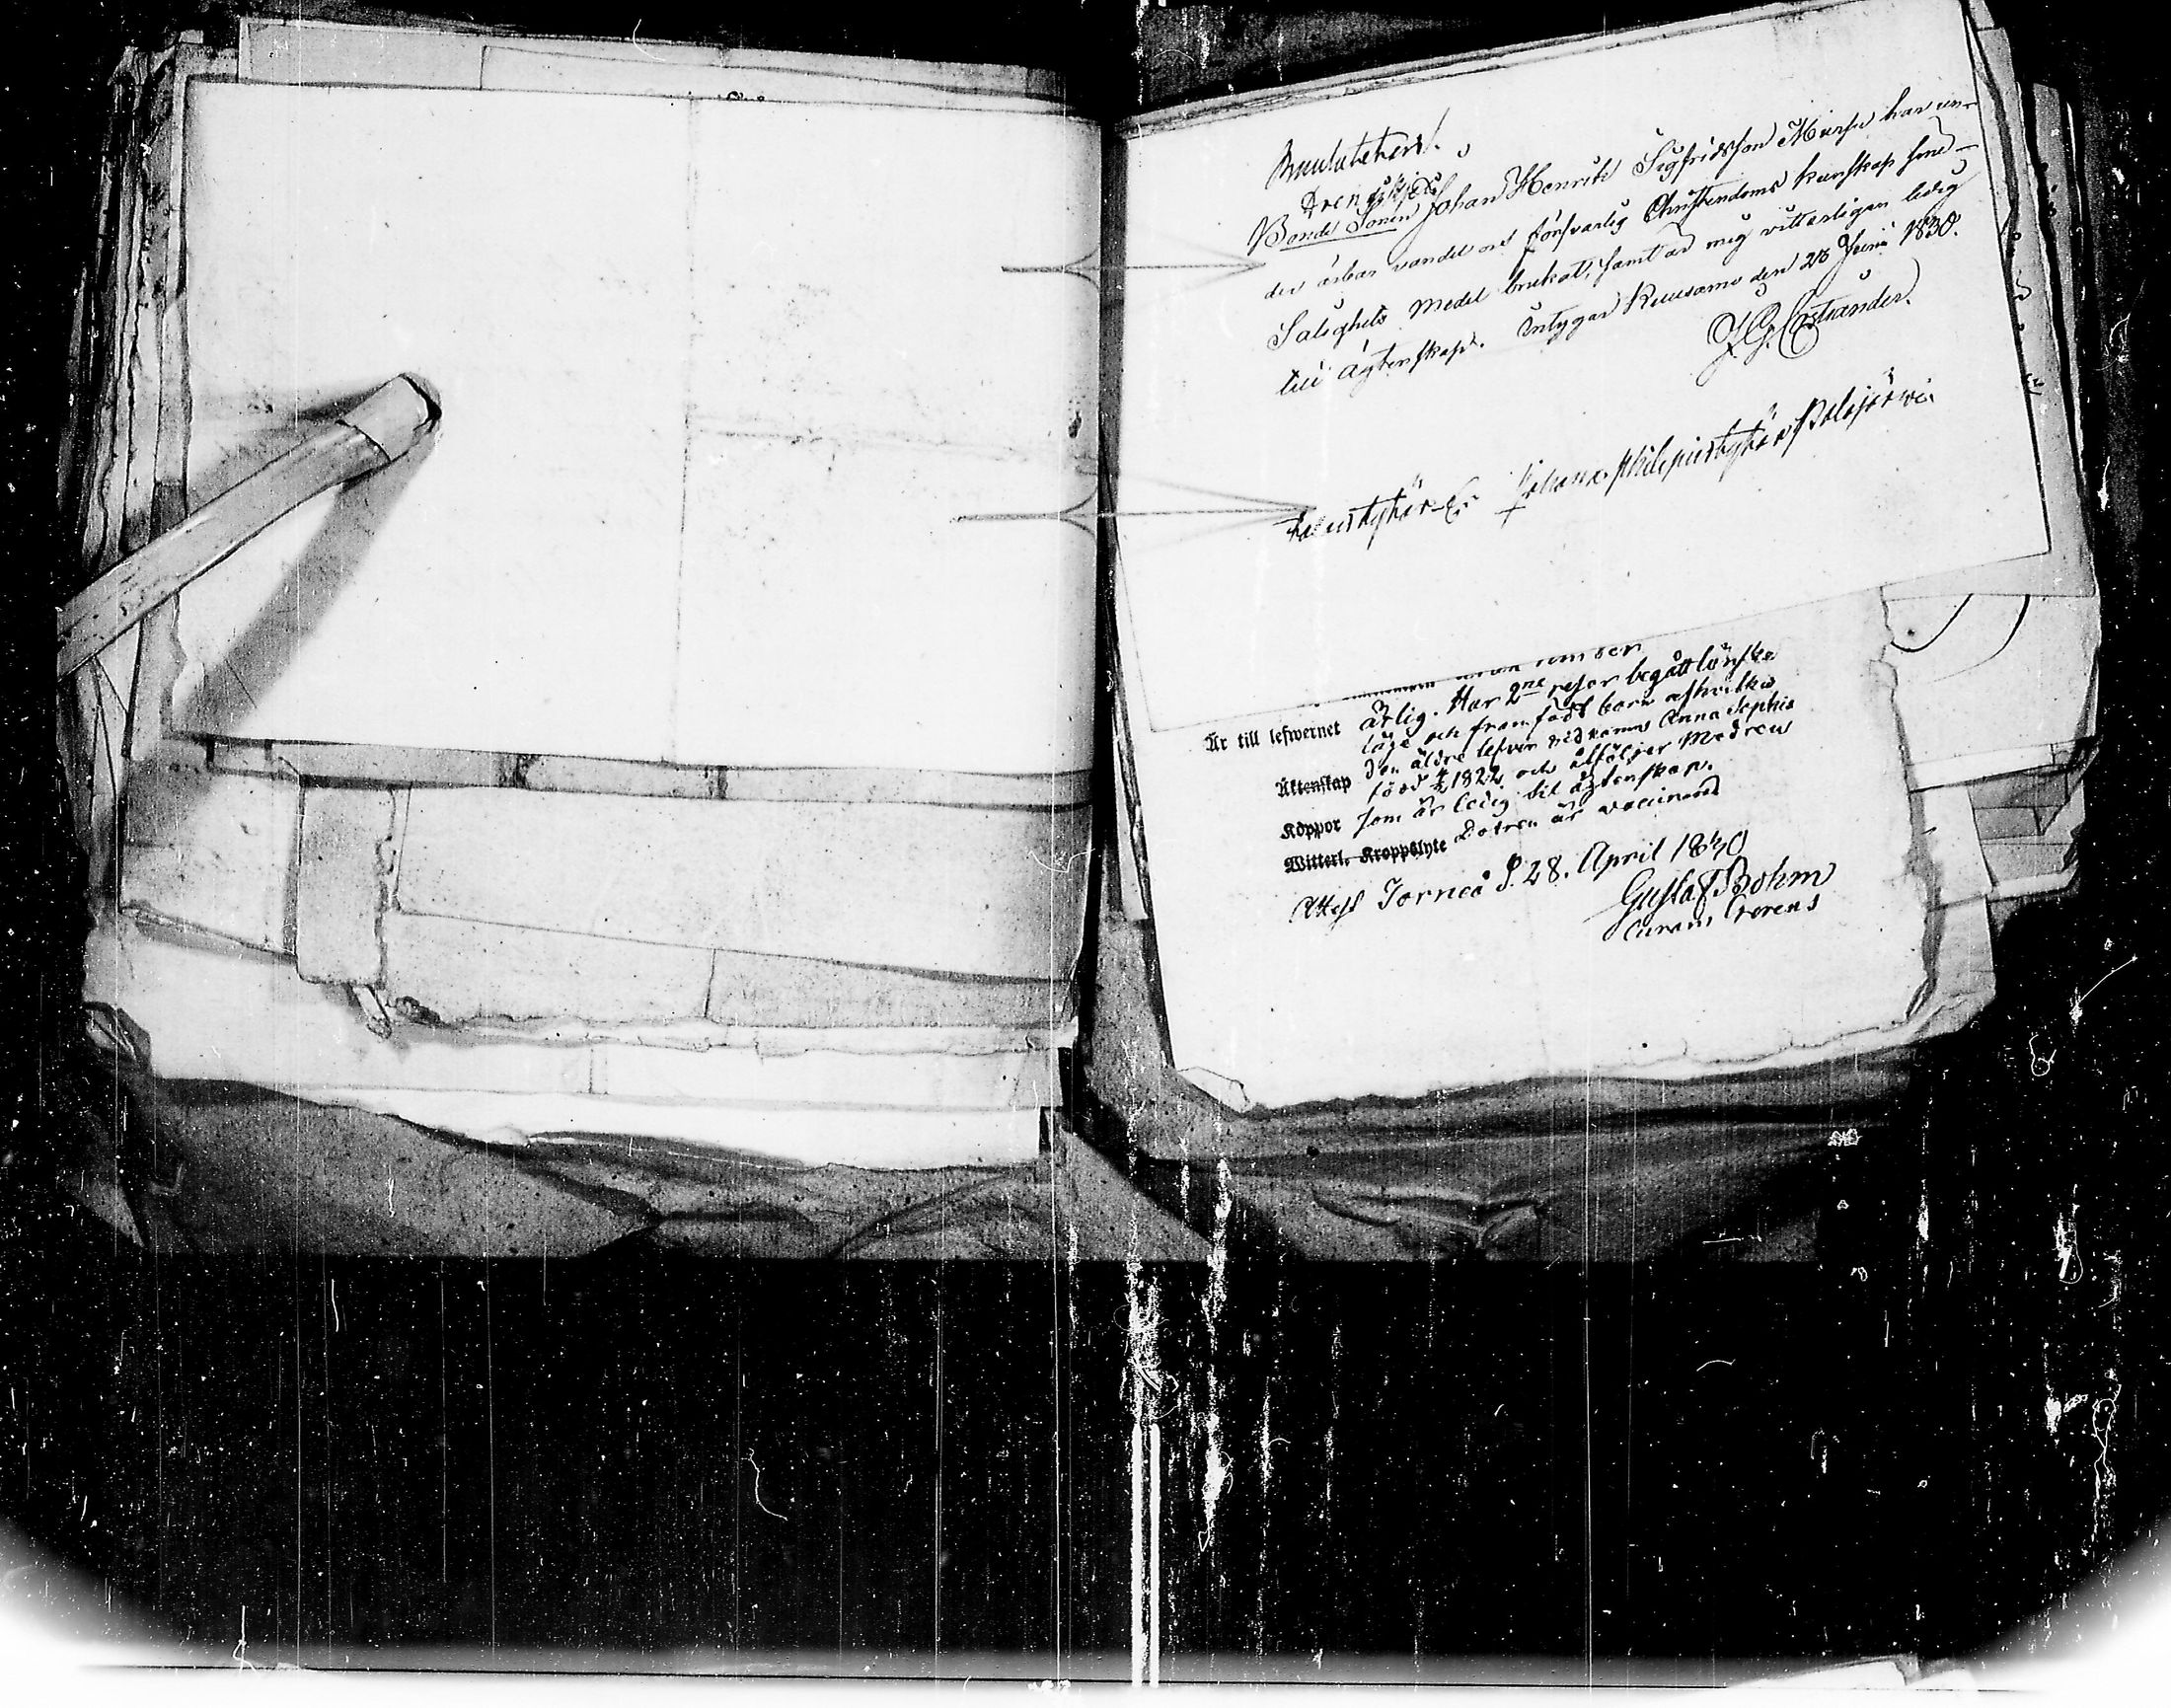 Drengskjeds
Bonde Sonen Johan Henrik Sigfridsson Mursu har un-
der ärbar vandel och försvarlig Christendoms kunskap sine
Salighets medel brukat, samt är mig vitterligen ledig
till Ägtenskap. Intygar Kuusamo den 28 Junii 1830.
J. G. Costiander.
Johan Philipus Polojärwi
Är till lefwernet ärlig. Har 2ne resor begått lönske
läge och framfödt barn af hvilka
den äldre lefver vid namn Anna Sophia
Äktenskap född 1822 och åtföljer Modren
Koppor som är ledig till ägtenskap.
Witterl. Kroppslyte Dotren är vaccinerad
Attest Torneå d. 28. April 1840
Gustaf Bohm
Curam Gerens